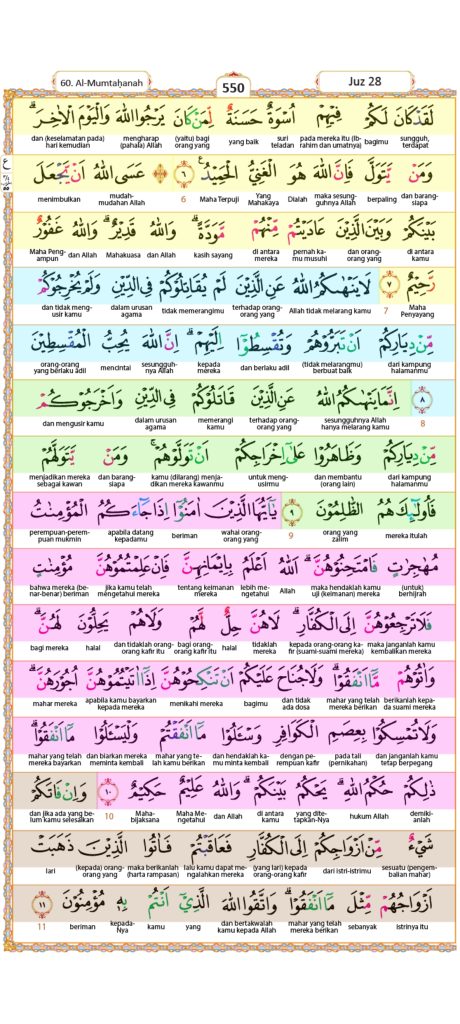 60. Al-Mumtaḥanah
550
Juz 28
لَقَدْ كَانَ لَكُمْ فِيْهِمْ اُسْوَةٌ حَسَنَةٌ لِّمَنْ كَانَ يَرْجُوا اللّٰهَ وَالْيَوْمَ الْاٰخِرَۗ
sungguh, terdapat bagimu pada mereka itu (Ibrahim dan umatnya) suri teladan yang baik (yaitu) bagi orang yang mengharap (pahala) Allah dan (keselamatan pada) hari kemudian
وَمَنْ يَّتَوَلَّ فَاِنَّ اللّٰهَ هُوَ الْغَنِيُّ الْحَمِيْدُ ࣖ ٦ عَسَى اللّٰهُ اَنْ يَّجْعَلَ
dan barangsiapa berpaling maka sesungguhnya Allah Dialah Yang Mahakaya Maha Terpuji 6 mudah-mudahan Allah menimbulkan
بَيْنَكُمْ وَبَيْنَ الَّذِيْنَ عَادَيْتُمْ مِّنْهُمْ مَّوَدَّةًۗ وَاللّٰهُ قَدِيْرٌۗ وَاللّٰهُ غَفُوْرٌ
di antara kamu dan orang-orang yang pernah kamu musuhi di antara mereka kasih sayang dan Allah Mahakuasa dan Allah Maha Pengampun
رَّحِيْمٌ ٧ لَا يَنْهٰىكُمُ اللّٰهُ عَنِ الَّذِيْنَ لَمْ يُقَاتِلُوْكُمْ فِى الدِّيْنِ وَلَمْ يُخْرِجُوْكُمْ
Maha Penyayang 7 Allah tidak melarang kamu terhadap orang-orang yang tidak memerangimu dalam urusan agama dan tidak mengusir kamu
مِّنْ دِيَارِكُمْ اَنْ تَبَرُّوْهُمْ وَتُقْسِطُوْٓا اِلَيْهِمْۗ اِنَّ اللّٰهَ يُحِبُّ الْمُقْسِطِيْنَ
dari kampung halamanmu (tidak melarangmu) berbuat baik dan berlaku adil kepada mereka sesungguhnya Allah mencintai orang-orang yang berlaku adil
٨ اِنَّمَا يَنْهٰىكُمُ اللّٰهُ عَنِ الَّذِيْنَ قَاتَلُوْكُمْ فِى الدِّيْنِ وَاَخْرَجُوْكُمْ
8 sesungguhnya Allah hanya melarang kamu terhadap orang-orang yang memerangi kamu dalam urusan agama dan mengusir kamu
مِّنْ دِيَارِكُمْ وَظَاهَرُوْا عَلٰٓى اِخْرَاجِكُمْ اَنْ تَوَلَّوْهُمْۚ وَمَنْ يَّتَوَلَّهُمْ
dari kampung halamanmu dan membantu (orang lain) untuk mengusirmu kamu (dilarang) menjadikan mereka kawanmu dan barangsiapa menjadikan mereka sebagai kawan
فَاُولٰۤىِٕكَ هُمُ الظّٰلِمُوْنَ ٩ يٰٓاَيُّهَا الَّذِيْنَ اٰمَنُوْٓا اِذَا جَاۤءَكُمُ الْمُؤْمِنٰتُ
mereka itulah orang yang zalim 9 wahai orang-orang yang beriman apabila datang kepadamu perempuan-perempuan mukmin
مُهٰجِرٰتٍ فَامْتَحِنُوْهُنَّۗ اَللّٰهُ اَعْلَمُ بِاِيْمَانِهِنَّ فَاِنْ عَلِمْتُمُوْهُنَّ مُؤْمِنٰتٍ
(untuk) berhijrah maka hendaklah kamu uji (keimanan) mereka Allah lebih mengetahui tentang keimanan mereka jika kamu telah mengetahui mereka bahwa mereka (benar-benar) beriman
فَلَا تَرْجِعُوْهُنَّ اِلَى الْكُفَّارِۗ لَا هُنَّ حِلٌّ لَّهُمْ وَلَا هُمْ يَحِلُّوْنَ لَهُنَّۗ
maka janganlah kamu kembalikan mereka kepada orang-orang kafir (suami-suami mereka) tidaklah mereka halal bagi orang-orang kafir itu dan tidaklah orang-orang kafir itu halal bagi mereka
وَاٰتُوْهُمْ مَّآ اَنْفَقُوْاۗ وَلَا جُنَاحَ عَلَيْكُمْ اَنْ تَنْكِحُوْهُنَّ اِذَآ اٰتَيْتُمُوْهُنَّ اُجُوْرَهُنَّۗ
berikanlah kepada suami mereka mahar yang telah mereka berikan dan tidak ada dosa bagimu menikahi mereka apabila kamu bayarkan kepada mereka mahar mereka
وَلَا تُمْسِكُوْا بِعِصَمِ الْكَوَافِرِ وَسْـَٔلُوْا مَآ اَنْفَقْتُمْ وَلْيَسْـَٔلُوْا مَآ اَنْفَقُوْاۗ
dan janganlah kamu tetap berpegang pada tali (pernikahan) dengan perempuan kafir dan hendaklah kamu minta kembali mahar yang telah kamu berikan dan biarkan mereka meminta kembali mahar yang telah mereka bayarkan
ذٰلِكُمْ حُكْمُ اللّٰهِۗ يَحْكُمُ بَيْنَكُمْۗ وَاللّٰهُ عَلِيْمٌ حَكِيْمٌ ١٠ وَاِنْ فَاتَكُمْ
demikianlah hukum Allah yang ditetapkan-Nya di antara kamu dan Allah Maha Mengetahui Mahabijaksana 10 dan jika ada yang belum kamu selesaikan
شَيْءٌ مِّنْ اَزْوَاجِكُمْ اِلَى الْكُفَّارِ فَعَاقَبْتُمْ فَاٰتُوا الَّذِيْنَ ذَهَبَتْ
sesuatu (pengembalian mahar) dari istri-istrimu (yang lari) kepada orang-orang kafir lalu kamu dapat mengalahkan mereka maka berikanlah (harta rampasan) (kepada) orang-orang yang lari
اَزْوَاجُهُمْ مِّثْلَ مَآ اَنْفَقُوْاۗ وَاتَّقُوا اللّٰهَ الَّذِيْٓ اَنْتُمْ بِهٖ مُؤْمِنُوْنَ ١١
istrinya itu sebanyak mahar yang telah mereka berikan dan bertakwalah kamu kepada Allah yang kamu kepada-Nya beriman 11